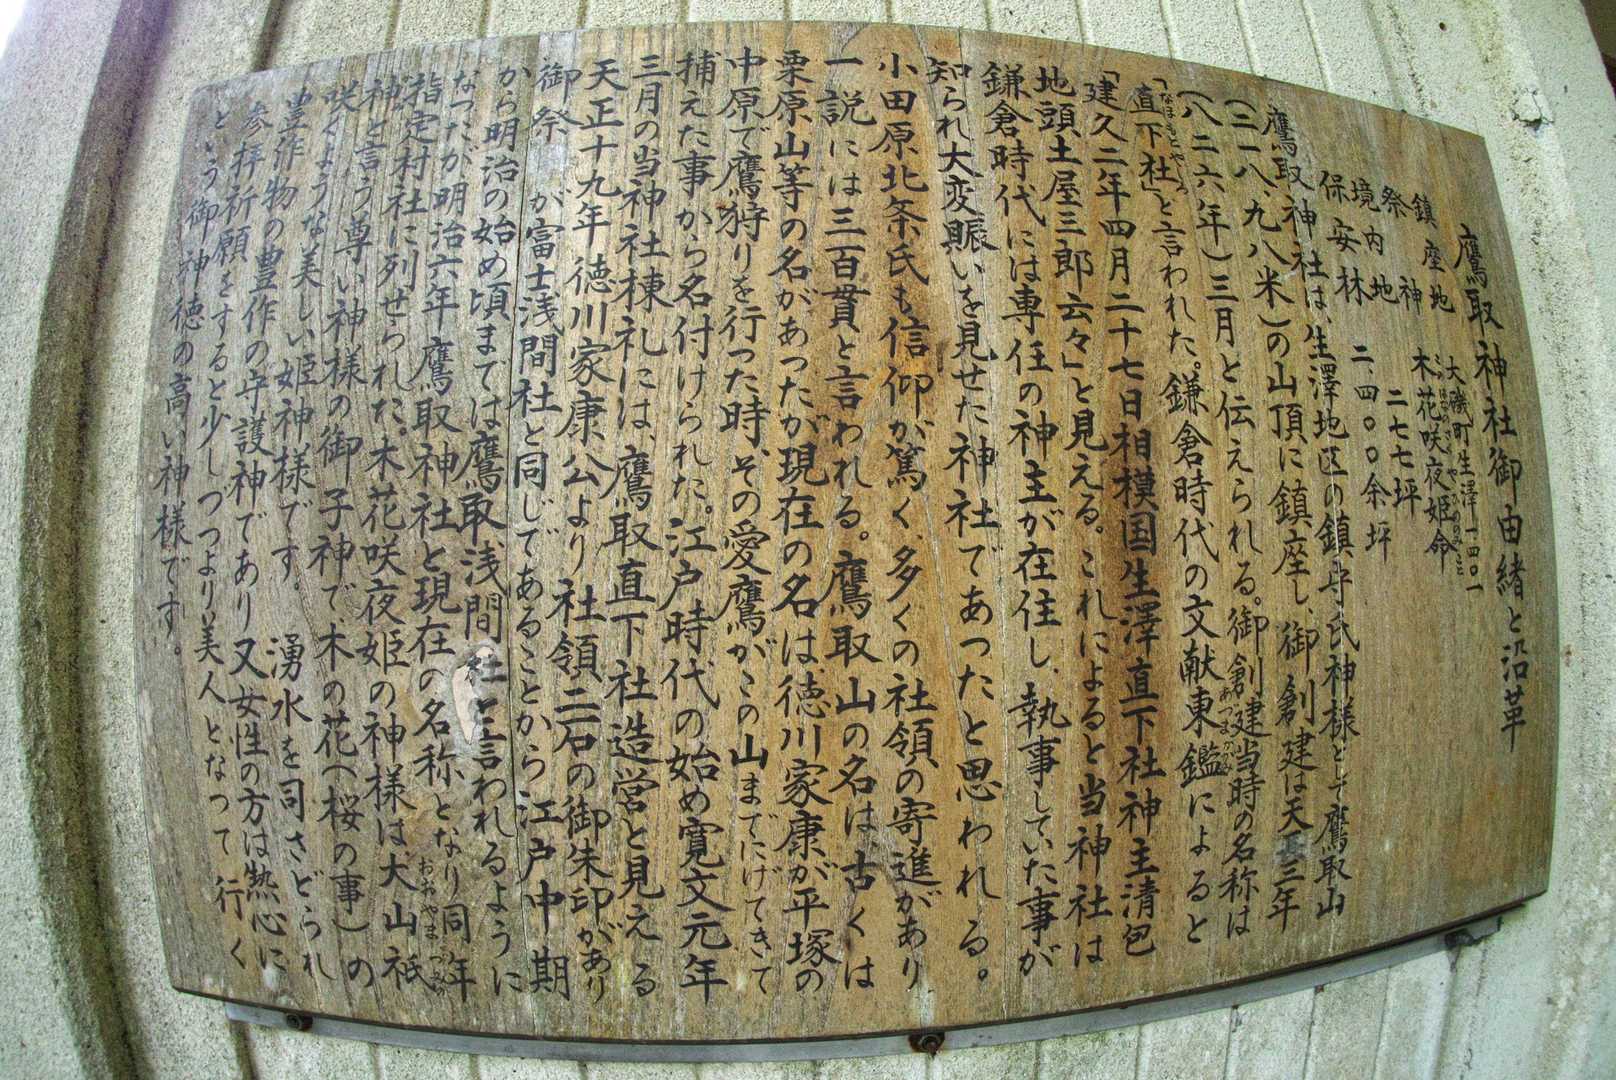 鷹取神社御由緒と沿革
鎮座地　大磯町生澤一四〇一
祭神　木花咲夜姫命
境内地　二七七坪
保安林　二.四〇〇余坪
鷹取神社は、生澤地区の鎮守氏神様として鷹取山
(二一八、九八米)の山頂に鎮座し、御創建は天長三年
(八二六年)三月と伝えられる。御創建当時の名称は
「直下社」と言われた。鎌倉時代の文献東鑑によると
「建久二年四月二十七日相模国生澤直下社神主清包
地頭土屋三郎云々」と見える。これによると当神社は
鎌倉時代には専任の神主が在住し、執事していた事が
知られ大変賑いを見せた神社であつたと思われる。
小田原北条氏も信仰が篤く、多くの社領の寄進があり
一説には三百貫と言われる。鷹取山の名は古くは
栗原山等の名があつたが現在の名は、徳川家康が平塚の
中原で鷹狩りを行つた時、その愛鷹がこの山までにげてきて
捕えた事から名付けられた。江戸時代の始め寛文元年
三月の当神社棟札には、鷹取直下社造営と見える
天正十九年徳川家康公より社領二石の御朱印があり
御祭が富士浅間社と同じであることから江戸中期
から明治の始め頃までは鷹取、浅間社と言われるように
なつたが明治六年鷹取神社と現在の名称となり同年
指定村社に列せられた。木花咲夜姫の神様は、大山祇
神と言う尊い神様の御子神で、木の花(桜の事)の
咲くような美しい姫神様です。湧水を司さどられ
豊作物の豊作の守護神であり又女性の方は熱心に
参拝祈願をすると少しつつより美人となつて行く
という御神徳の高い神様です。